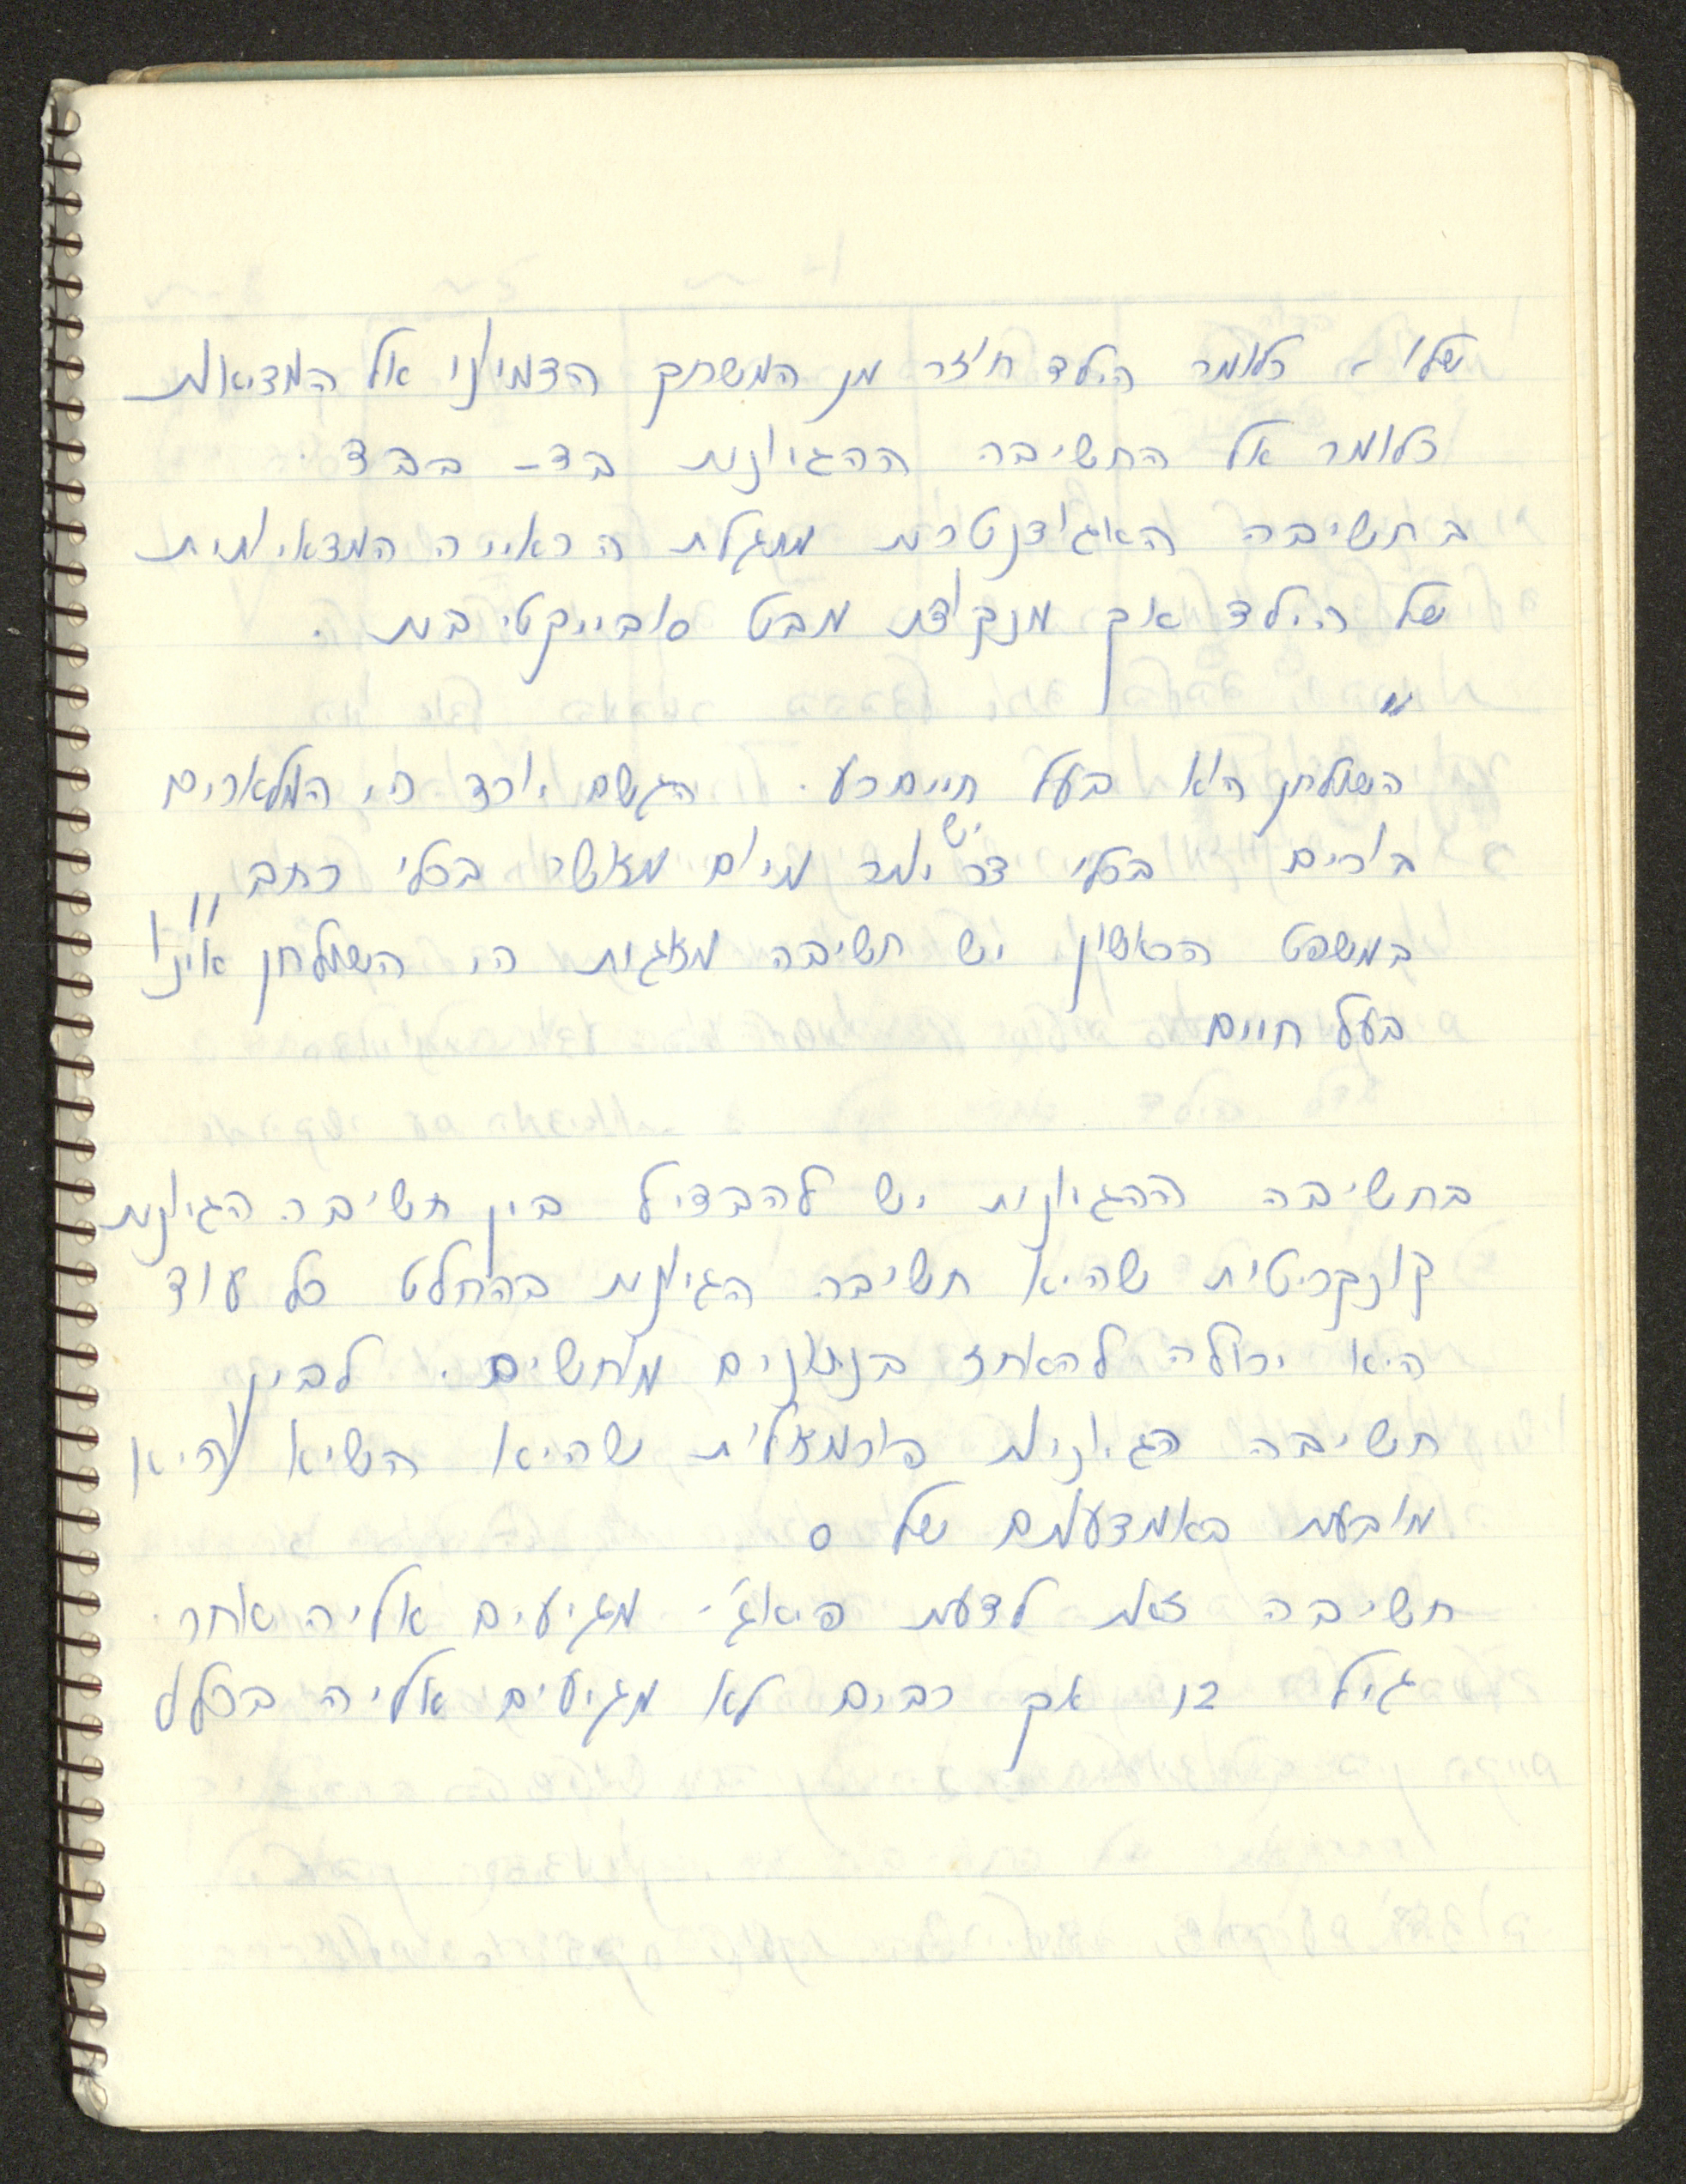 שלו - כלומר הילד חוזר מן המשחק הדמיוני אל המציאות
כלומר אל החשיבה ההגיונית בד - בבד.
בחשיבה האגוצנטרית מתגלת הראייה המציאותית
של הילד אך מנקודת מבט סובייקטיבית.
"
השולחן הוא בעל חיים רע. הגשם יורד כי המלאכים
בוכים בכלי צר יש יותר מים מאשר בכלי רחב"
במשפט הראשון יש חשיבה מאגית כי השולחן אינו
בעל חיים
בחשיבה ההגיונית יש להבדיל בין חשיבה הגיונית
קונקרטית שהיא חשיבה הגיונית בהחלט כל עוד
היא יכולה להאחז בנתונים מוחשים. לבין
חשיבה הגיונית פורמאלית שהיא השיא והיא
מובעת באמצעותם של ס
חשיבה זאת לדעת פיאג'י מגיעים אליה אחר
גיל 12 אך רבים לא מגיעים אליה בכלל